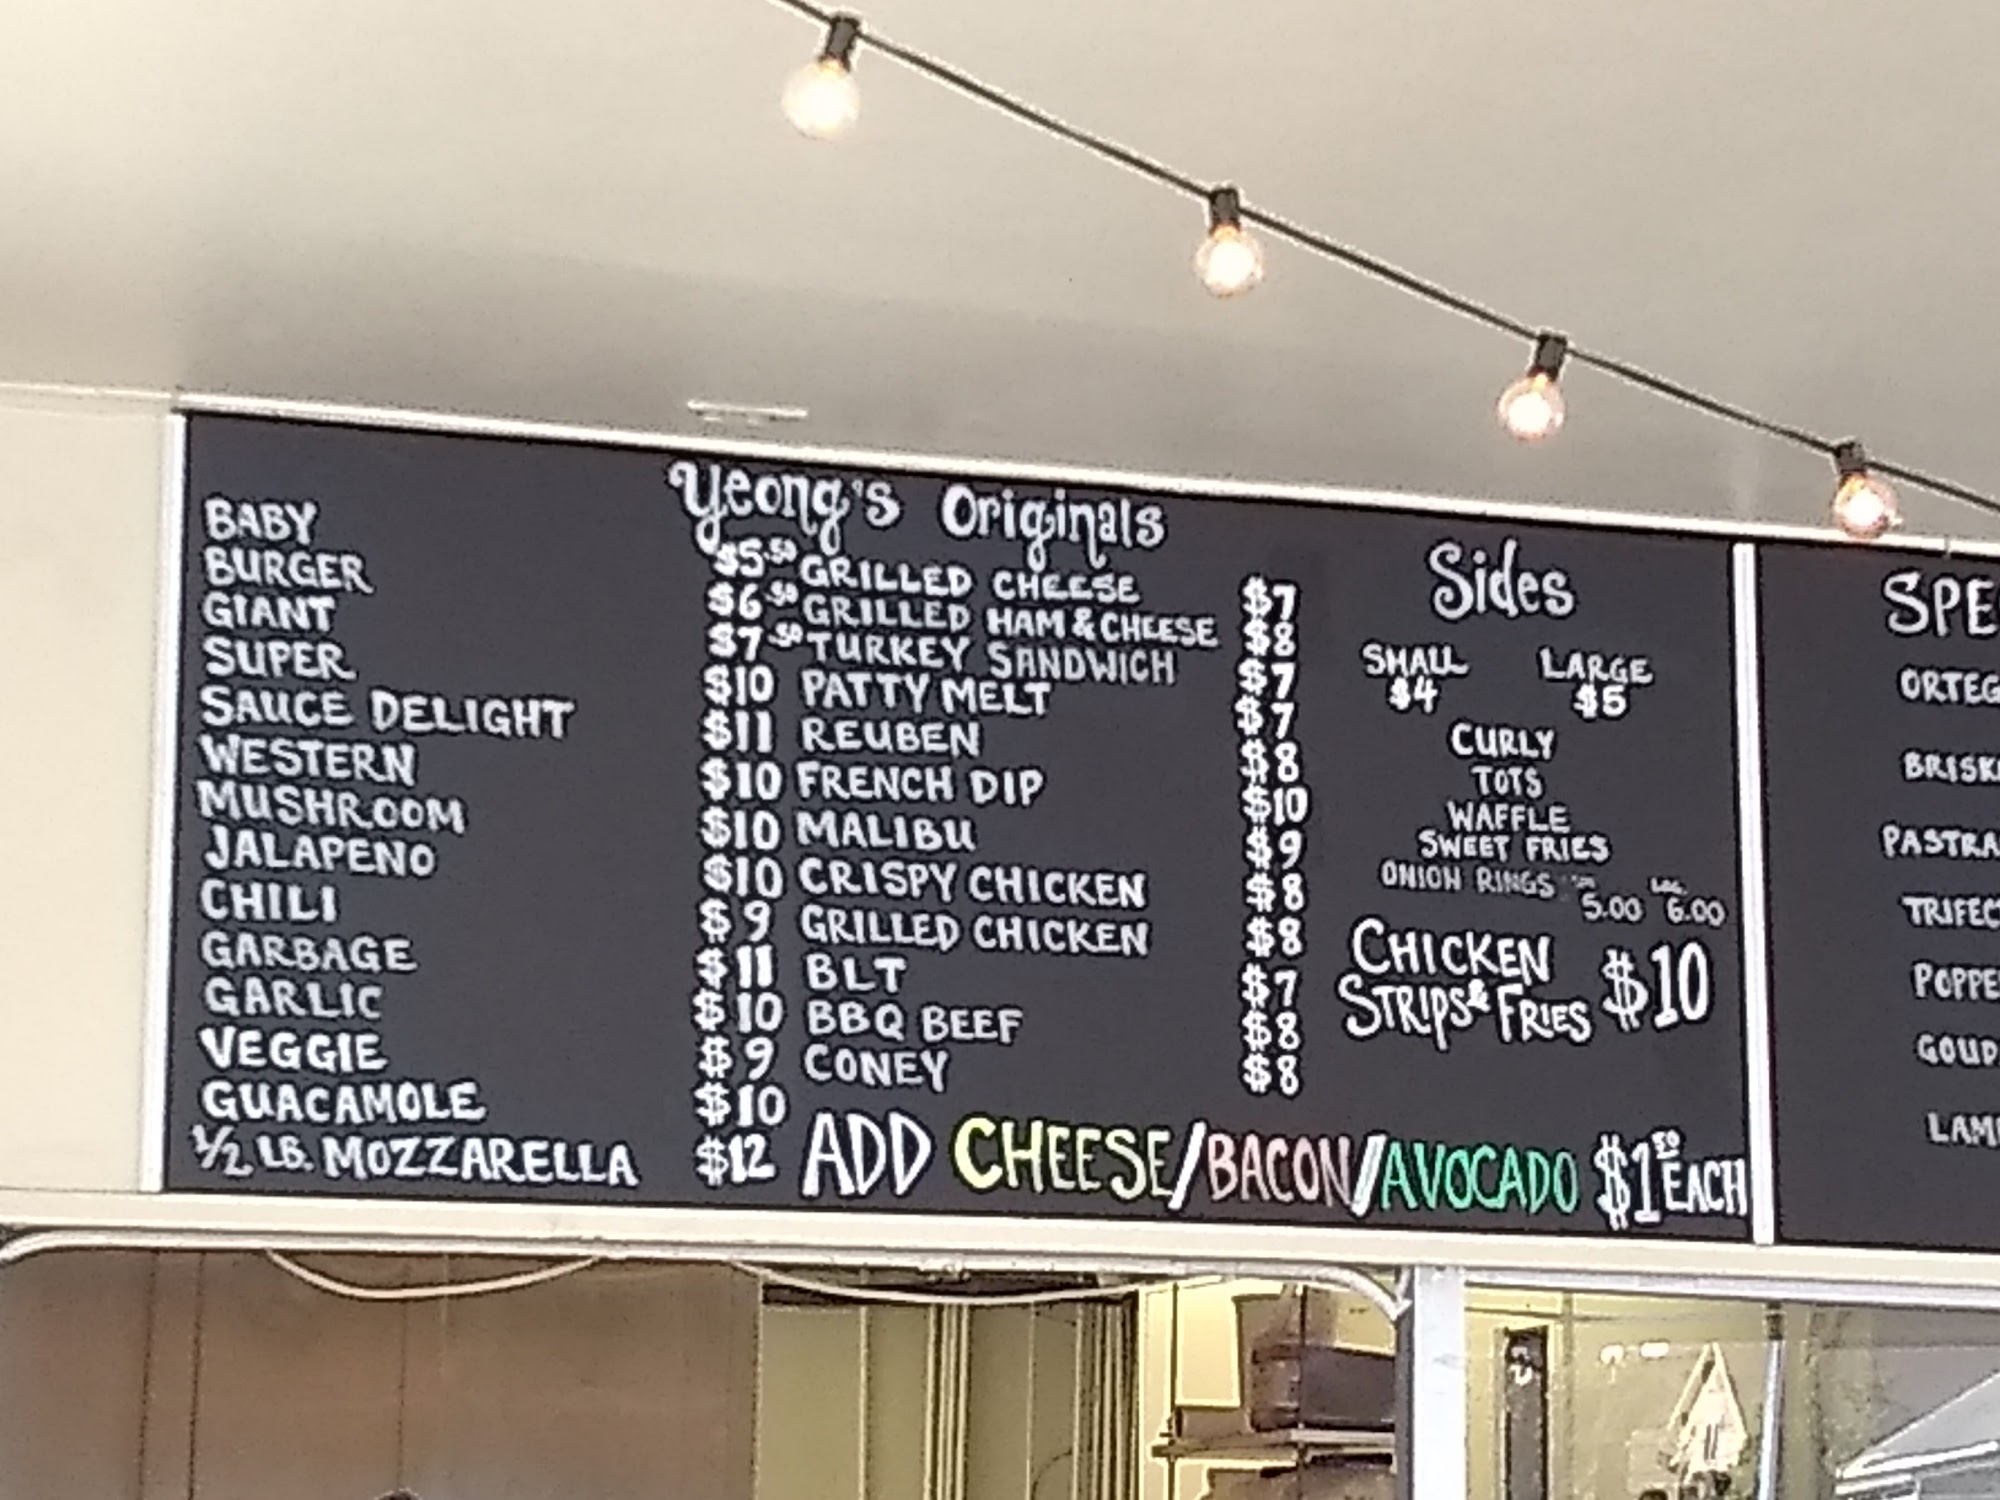 Yeong's Originals
BABY $5.50
BURGER $6.50
GIANT $7.50
SUPER $10
SAUCE DELIGHT $11
WESTERN $10
MUSHROOM $10
JALAPENO $10
CHILI $9
GARBAGE $11
GARLIC $10
VEGGIE $9
GUACAMOLE $10
1/2 LB. MOZZARELLA $12
GRILLED CHEESE $7
GRILLED HAM & CHEESE $8
TURKEY SANDWICH $7
PATTY MELT $7
REUBEN $8
FRENCH DIP $10
MALIBU $9
CRISPY CHICKEN $8
GRILLED CHICKEN $8
BLT $7
BBQ BEEF $8
CONEY $8
ADD CHEESE/BACON//AVOCADO $1.50 EACH
Sides
SMALL LARGE
$4 $5
CURLY
TOTS
WAFFLE
SWEET FRIES
ONION RINGS 5.00 6.00
CHICKEN
STRIPS & FRIES $10
SPE
ORTEG
BRISK
PASTRA
TRIFEC
POPPE
GOUD
LAM